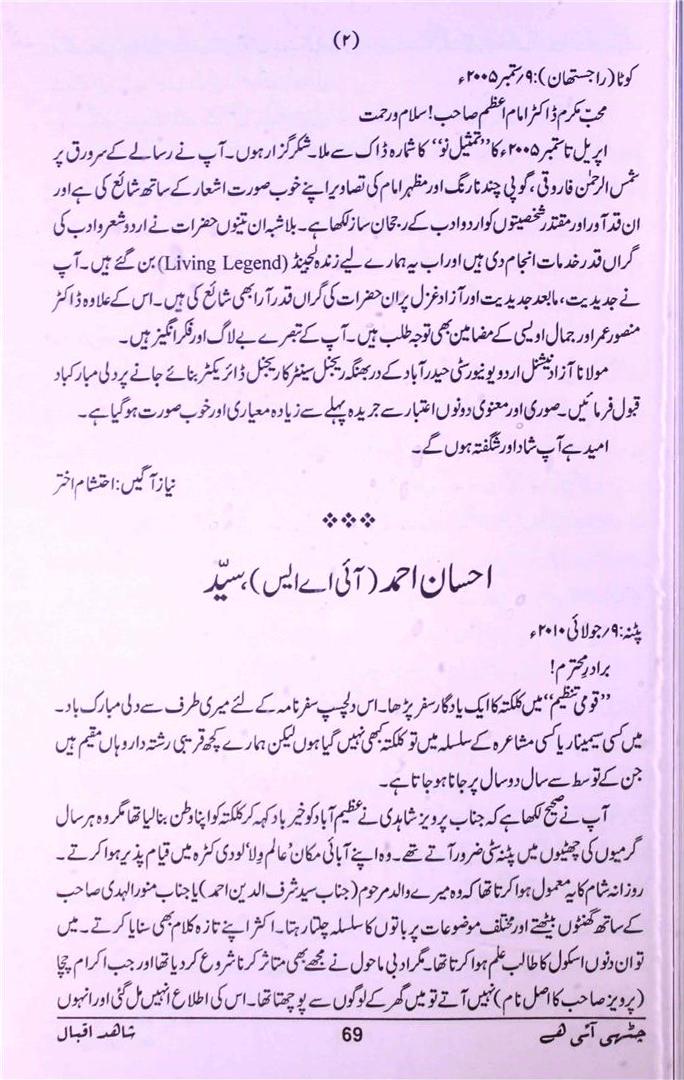 (۲)
کوٹا (راجستھان): ۹؍ستمبر ۲۰۰۵ء
محب مکرم ڈاکٹر امام اعظم صاحب! سلام و رحمت
اپریل تا ستمبر ۲۰۰۵ء کا ''تمثیل نو'' کا شمارہ ڈاک سے ملا۔ شکر گزار ہوں۔ آپ نے رسالے کے سرورق پر
شمس الرحمٰن فاروقی، گوپی چند نارنگ اور مظہر امام کی تصاویر اپنے خوب صورت اشعار کے ساتھ شائع کی ہے اور
ان قد آور اور مقتدر شخصیتوں کو اردو ادب کے رجحان ساز لکھا ہے۔ بلا شبہ ان تینوں حضرات نے اردو شعر و ادب کی
گراں قدر خدمات انجام دی ہیں اور اب یہ ہمارے لیے زندہ لیجنڈ (Living Legend) بن گئے ہیں۔ آپ
نے جدیدیت، مابعد جدیدیت اور آزاد غزل پر ان حضرات کی گراں قدر آرا بھی شائع کی ہیں۔ اس کے علاوہ ڈاکٹر
منصور عمر اور جمال اویسی کے مضامین بھی توجہ طلب ہیں۔ آپ کے تبصرے بے لاگ اور فکر انگیز ہیں۔
مولانا آزاد نیشنل اردو یونیورسٹی حیدرآباد کے دربھنگہ ریجنل سینٹر کا ریجنل ڈائریکٹر بنائے جانے پر دلی مبارکباد
قبول فرمائیں۔ صوری اور معنوی دونوں اعتبار سے جریدہ پہلے سے زیادہ معیاری اور خوب صورت ہو گیا ہے۔
امید ہے آپ شاد اور شگفتہ ہوں گے۔
نیاز آگیں: احتشام اختر
احسان احمد (آئی اے ایس)، سیّد
پٹنہ: ۹؍جولائی ۲۰۱۰ء
برادر محترم!
''قومی تنظیم'' میں کلکتہ کا ایک یادگار سفر پڑھا۔ اس دلچسپ سفرنامہ کے لئے میری طرف سے دلی مبارک باد۔
میں کسی سیمینار یا کسی مشاعرہ کے سلسلہ میں تو کلکتہ کبھی نہیں گیا ہوں لیکن ہمارے کچھ قریبی رشتہ دار وہاں مقیم ہیں
جن کے توسط سے سال دو سال پر جانا ہو جاتا ہے۔
آپ نے صحیح لکھا ہے کہ جناب پرویز شاہدی نے عظیم آباد کو خیر باد کہہ کر کلکتہ کو اپنا وطن بنا لیا تھا مگر وہ ہر سال
گرمیوں کی چھٹیوں میں پٹنہ سٹی ضرور آتے تھے۔ وہ اپنے آبائی مکان 'عالم ولا' لودی کٹرہ میں قیام پذیر ہوا کرتے۔
روزانہ شام کا یہ معمول ہوا کرتا تھا کہ وہ میرے والد مرحوم (جناب سید شرف الدین احمد) یا جناب منور الہدی صاحب
کے ساتھ گھنٹوں بیٹھتے اور مختلف موضوعات پر باتوں کا سلسلہ چلتا رہتا۔ اکثر اپنے تازہ کلام بھی سنایا کرتے۔ میں
تو ان دنوں اسکول کا طالب علم ہوا کرتا تھا۔ مگر ادبی ماحول نے مجھے بھی متاثر کرنا شروع کر دیا تھا اور جب اکرام چچا
(پرویز صاحب کا اصل نام) نہیں آتے تو میں گھر کے لوگوں سے پوچھتا تھا۔ اس کی اطلاع انہیں مل گئی اور انہوں
چٹھی آئی ھے 69 شاھد اقبال